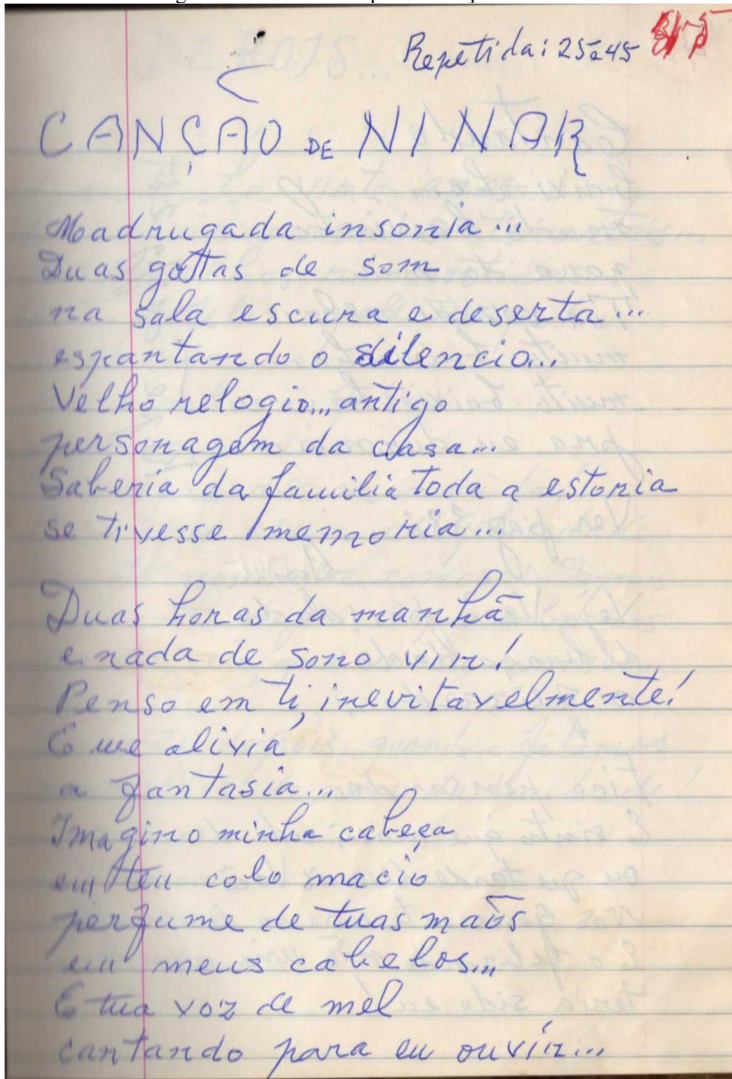 Repetida: 25 a 45
CANÇÃO DE NINAR
Madrugada insonia...
Duas gotas de som
na sala escura e deserta...
espantando o silencio...
Velho relogio... antigo
personagem da casa...
Saberia da familia toda a estoria
se tivesse memoria...
Duas horas da manhã
e nada de sono vir!
Penso em ti, inevitavelmente!
E me alivia
a fantasia...
Imagino minha cabeça
em teu colo macio
perfume de tuas maõs
em meus cabelos...
E tua voz de mel
cantando para eu ouvir...